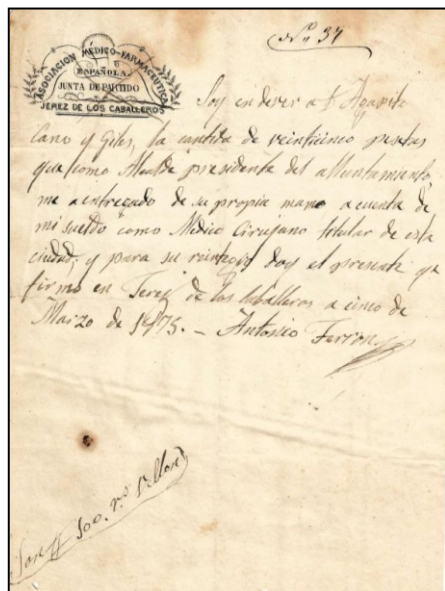 Nº 37
ASOCIACION MÉDICO-FARMACEUTICA
ESPAÑOLA
JUNTA DE PARTIDO
JEREZ DE LOS CABALLEROS
Soy en dever a D. Agapito
Cano y Giles, la cantida de veinticinco pesetas
que como Alcalde presidente del alluntamiento,
me a entregado de su propia mano a cuenta de
mi sueldo como Medico Cirujano titular de esta
ciudad; y para su reintegro doy el presente que
firmo en Jerez de los Caballeros a cinco de
Marzo de 1875. - Antonio Ferron
Son 100 rs. Vellon